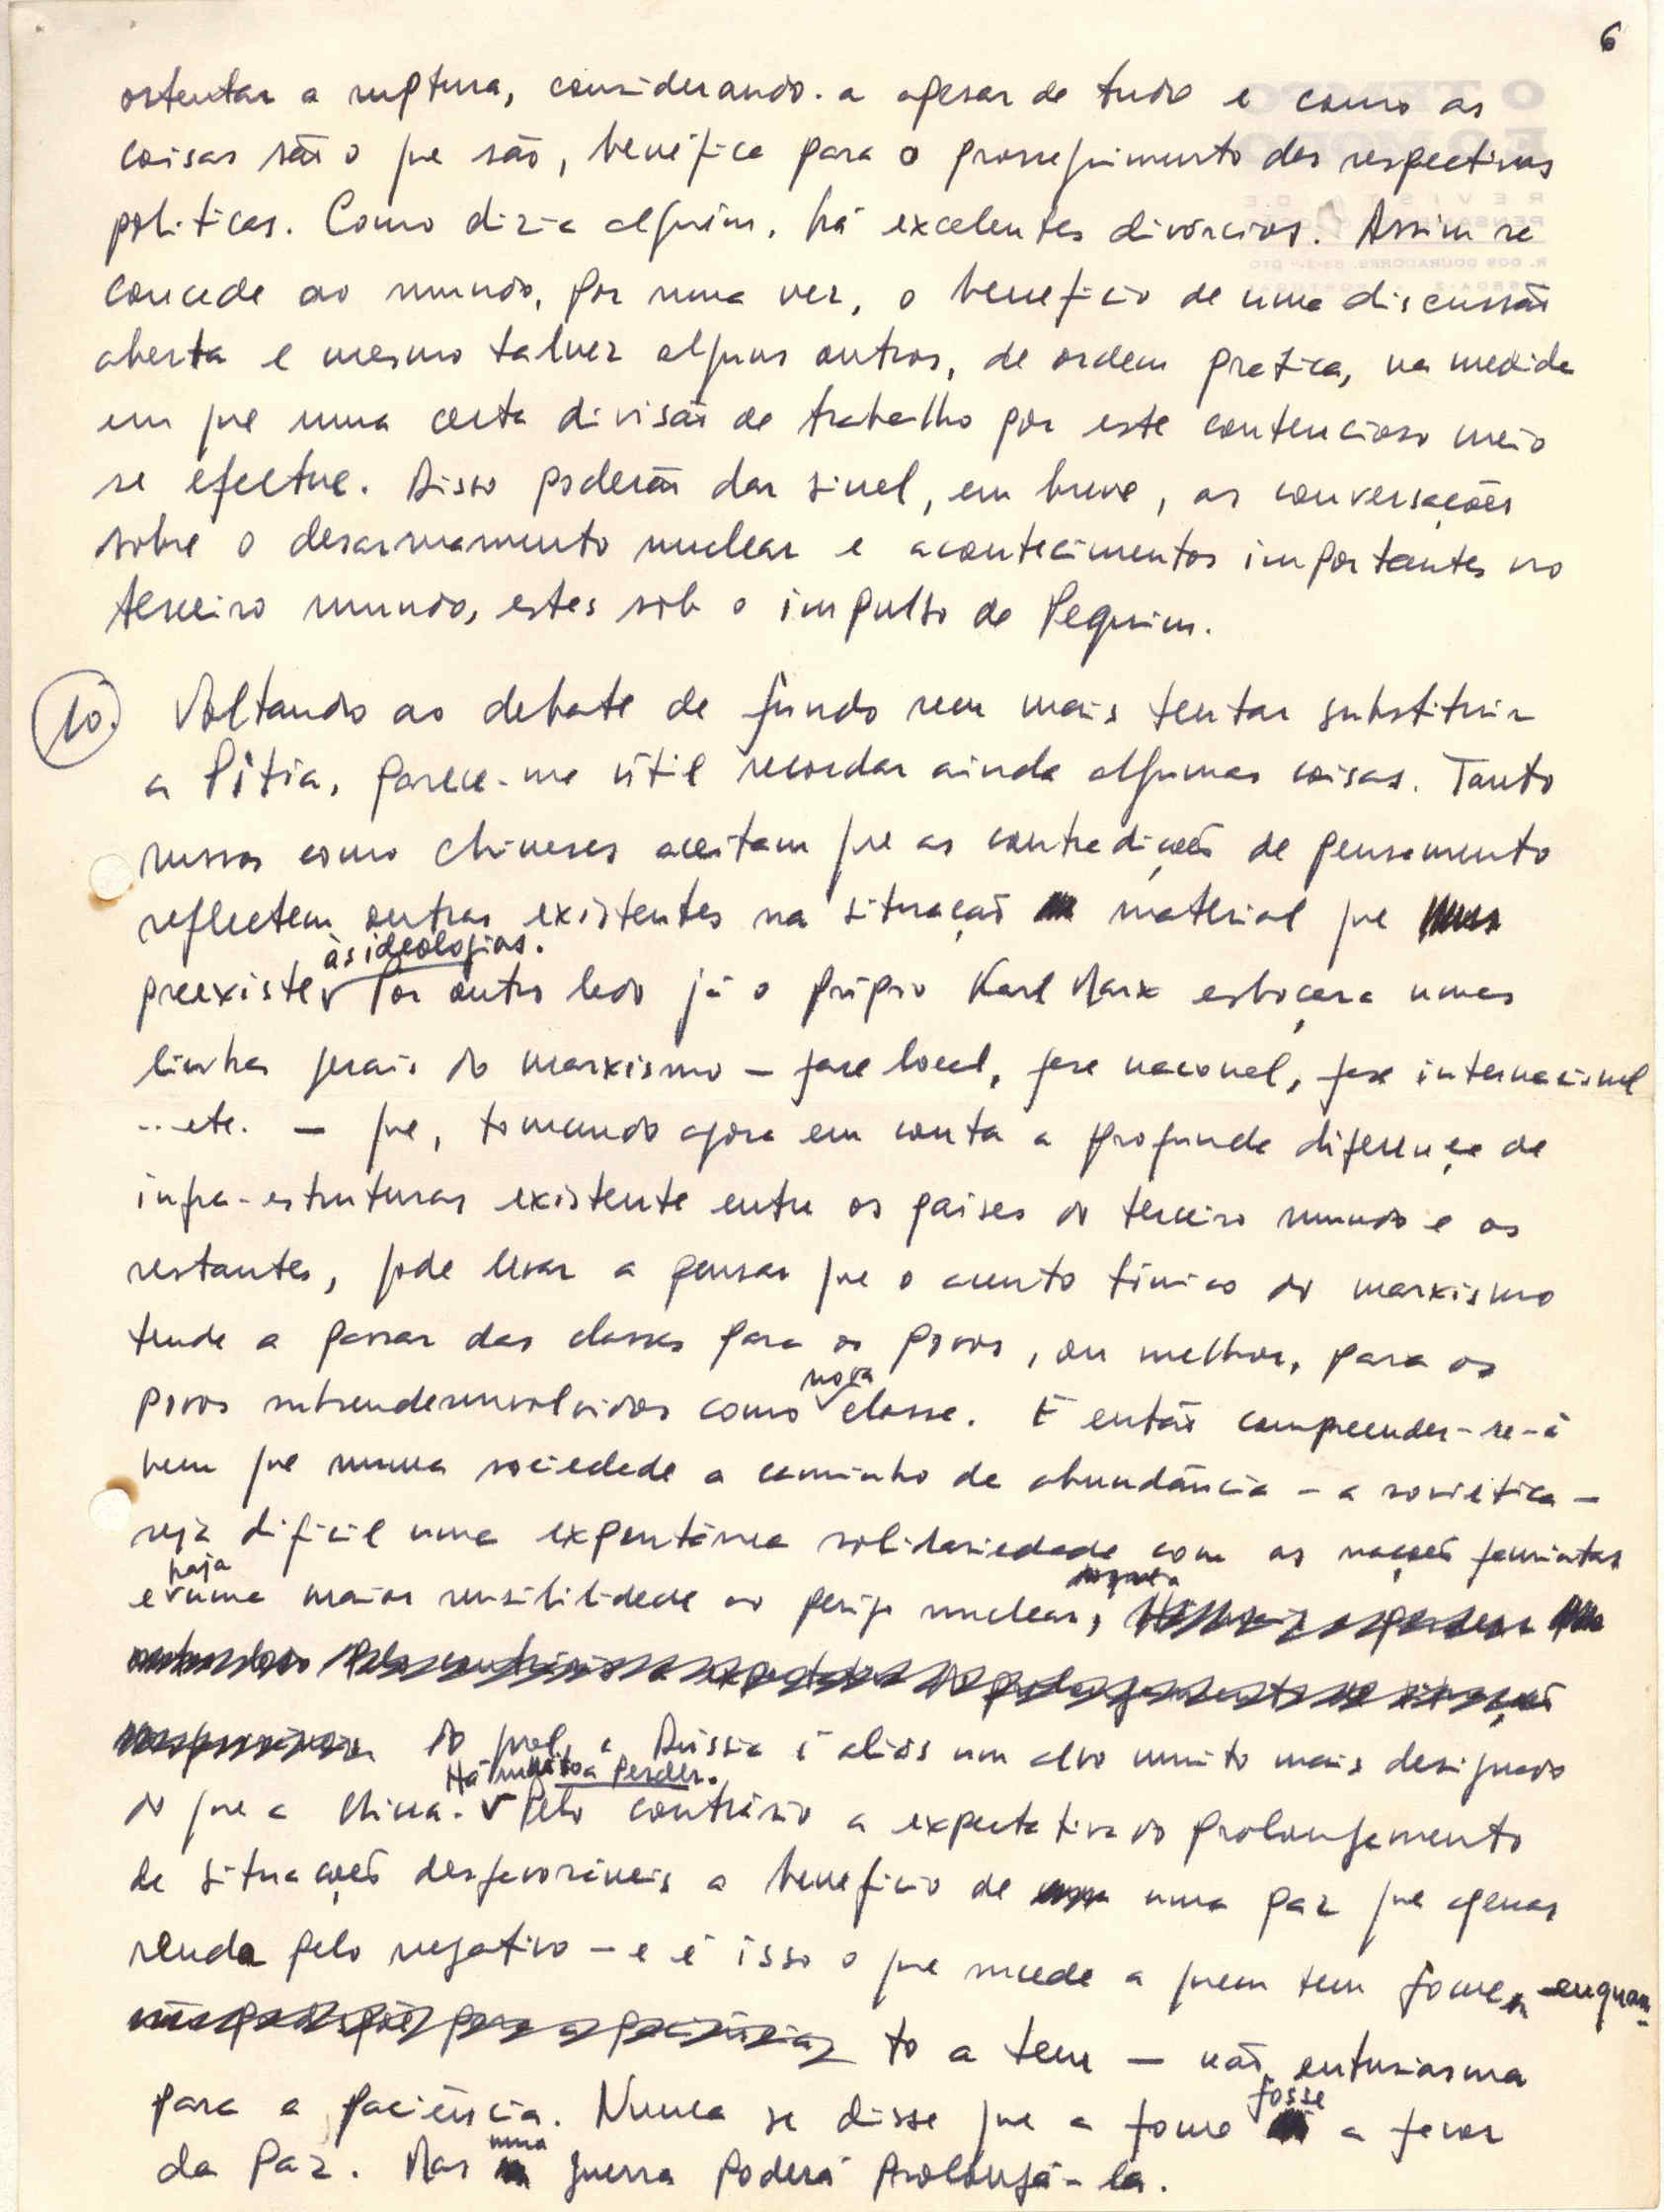 6
ostentar a ruptura, considerando-a apesar de tudo e como as
coisas são o que são, benéfica para o prosseguimento das respectivas
politicas. Como dizia alguém, há excelentes divórcios. Assim se
concede ao mundo, por uma vez, o beneficio de uma discussão
aberta e mesmo talvez alguns outros, de ordem pratica, na medida
em que uma certa divisão de trabalho por este contencioso meio
se efectue. Disso poderão dar sinal, em breve, as conversações
sobre o desarmamento nuclear e acontecimentos importantes no
terceiro mundo, estes sob o impulso de Pequim.
10. Voltando ao debate de fundo sem mais tentar substituir
a Pítia, parece-me útil recordar ainda algumas coisas. Tanto
russos como chineses aceitam que as contradições de pensamento
reflectem outras existentes na situação material que
preexiste às ideologias. Por outro lado já o próprio Karl Marx esboçara umas
linhas gerais do marxismo — fase local, fase naconal, fase internacional
...etc. — que, tomando agora em conta a profunda diferença de
infra-estruturas existente entre os países do terceiro mundo e os
restantes, pode levar a pensar que o acento tónico do marxismo
tende a passar das classes para os povos, ou melhor, para os
povos subendesenvolvidos como nova classe. E então compreender-se-á
bem que numa sociedade a caminho de abundância — a soviética —
seja dificil uma expontânea solidariedade com as nações famintas
e haja uma maior sensibilidade ao perigo nuclear,
do qual, a Rússia é aliás um alvo muito mais designado
do que a China. Há muito a perder. Pelo contrário a expectativa do prolongamento
de situações desfavoráveis a beneficio de uma paz que apenas
renda pelo negativo — e é isso o que sucede a quem tem fome, enquan-
to a tem — não entusiasma
para a paciência. Nunca se disse que a fome fosse a favor
da Paz. Mas uma guerra poderá prolongá-la.